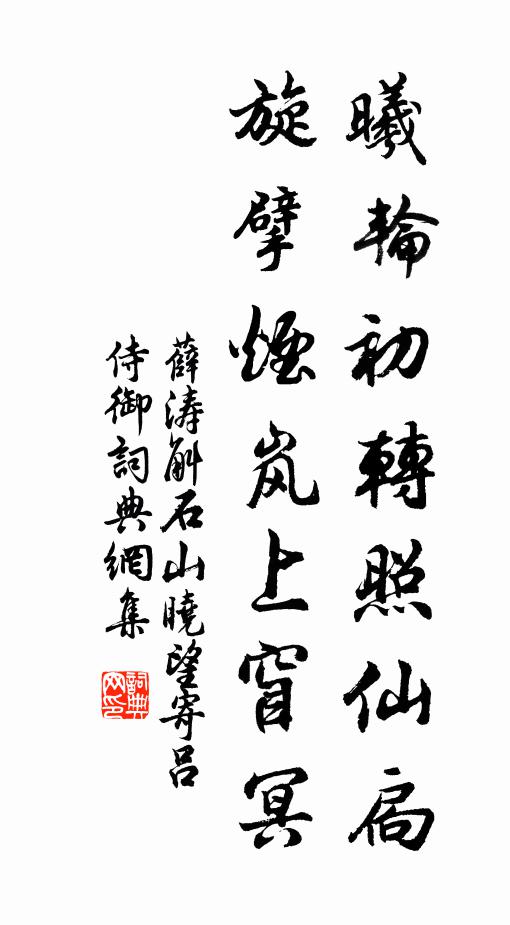 曦輪初轉照仙扃
旋擘煙岚上窅冥
薛濤斛石山曉望寄呂
侍御詞典網集
詞典网印